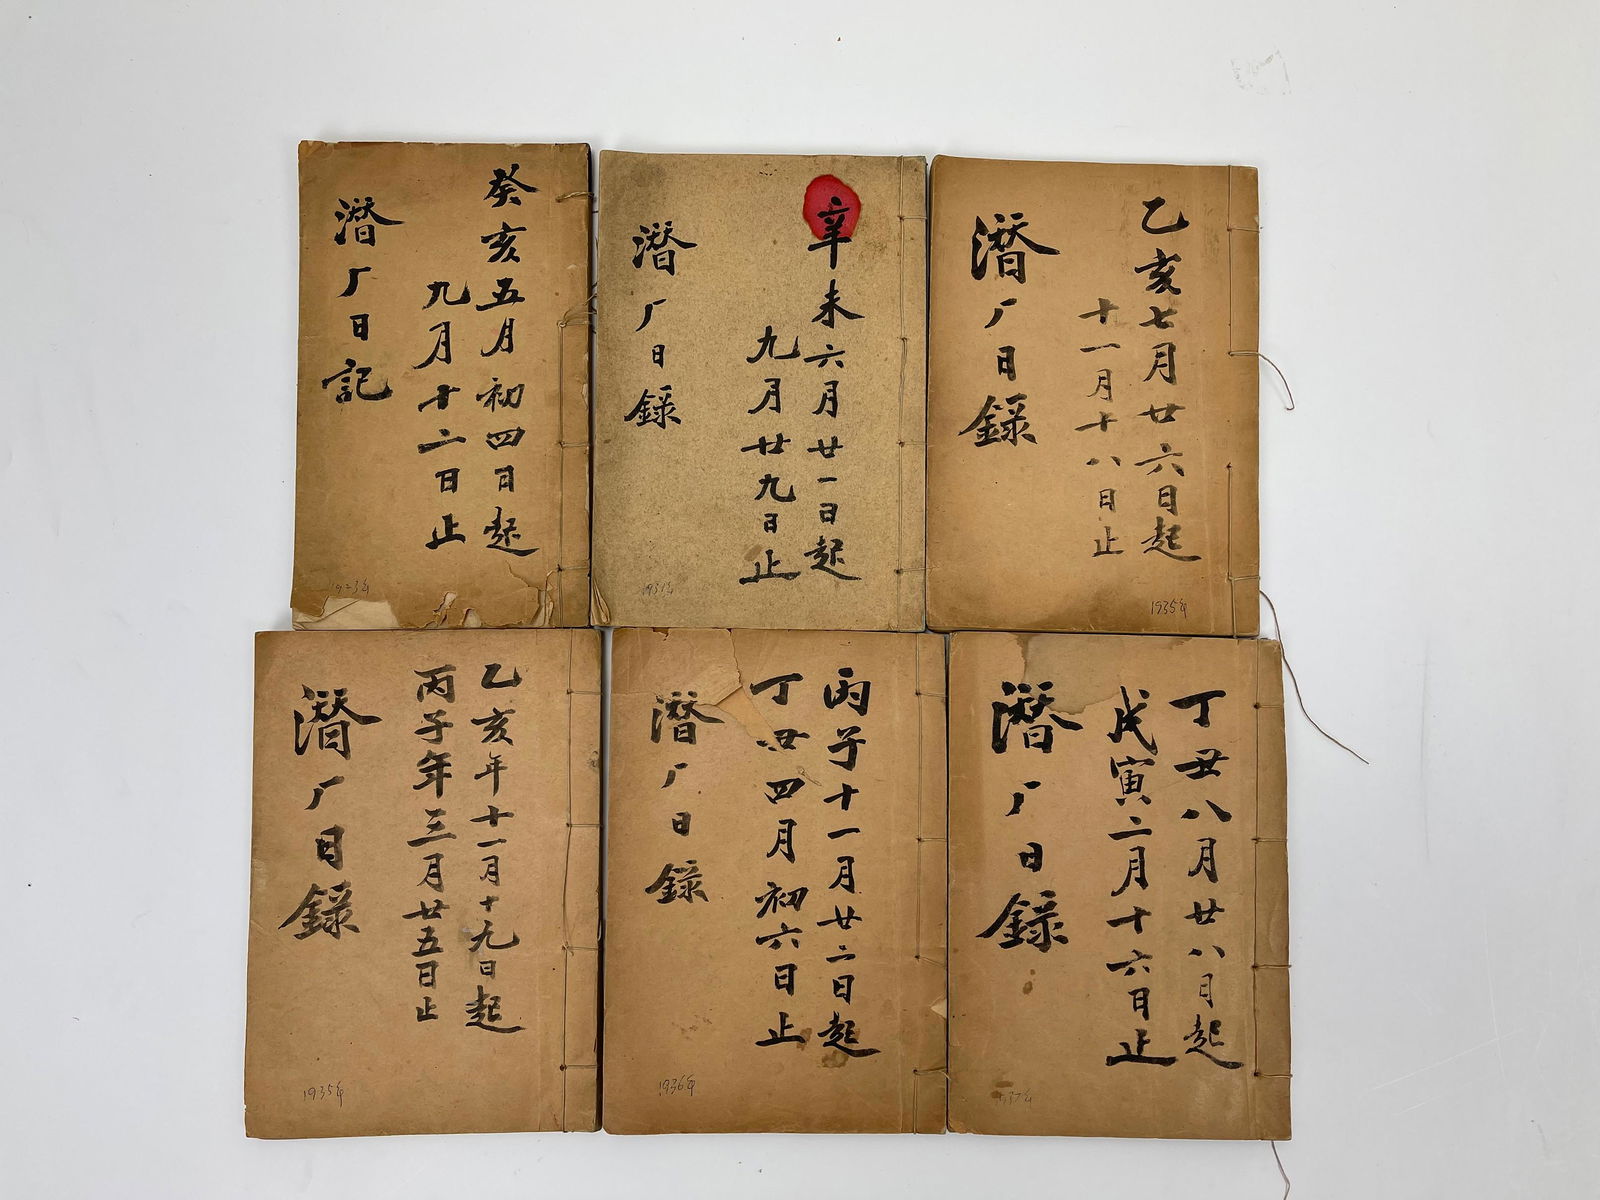 癸亥五月初四日起
九月十二日止
潛厂日記
1923年
辛未六月廿一日起
九月廿九日止
潛厂日錄
1931年
乙亥七月廿六日起
十一月十八日止
潛厂日錄
1935年
乙亥年十一月十九日起
丙子年三月廿五日止
潛厂日錄
1935年
丙子十一月廿二日起
丁丑四月初六日止
潛厂日錄
1936年
丁丑八月廿八月起
戊寅二月十六日止
潛厂日錄
1937年